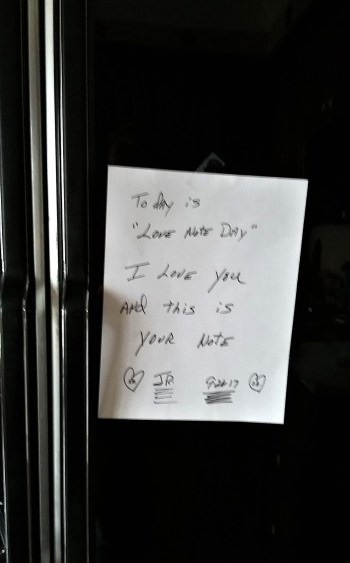 Today is
"Love Note Day"
I Love you
And this is
your Note
JR